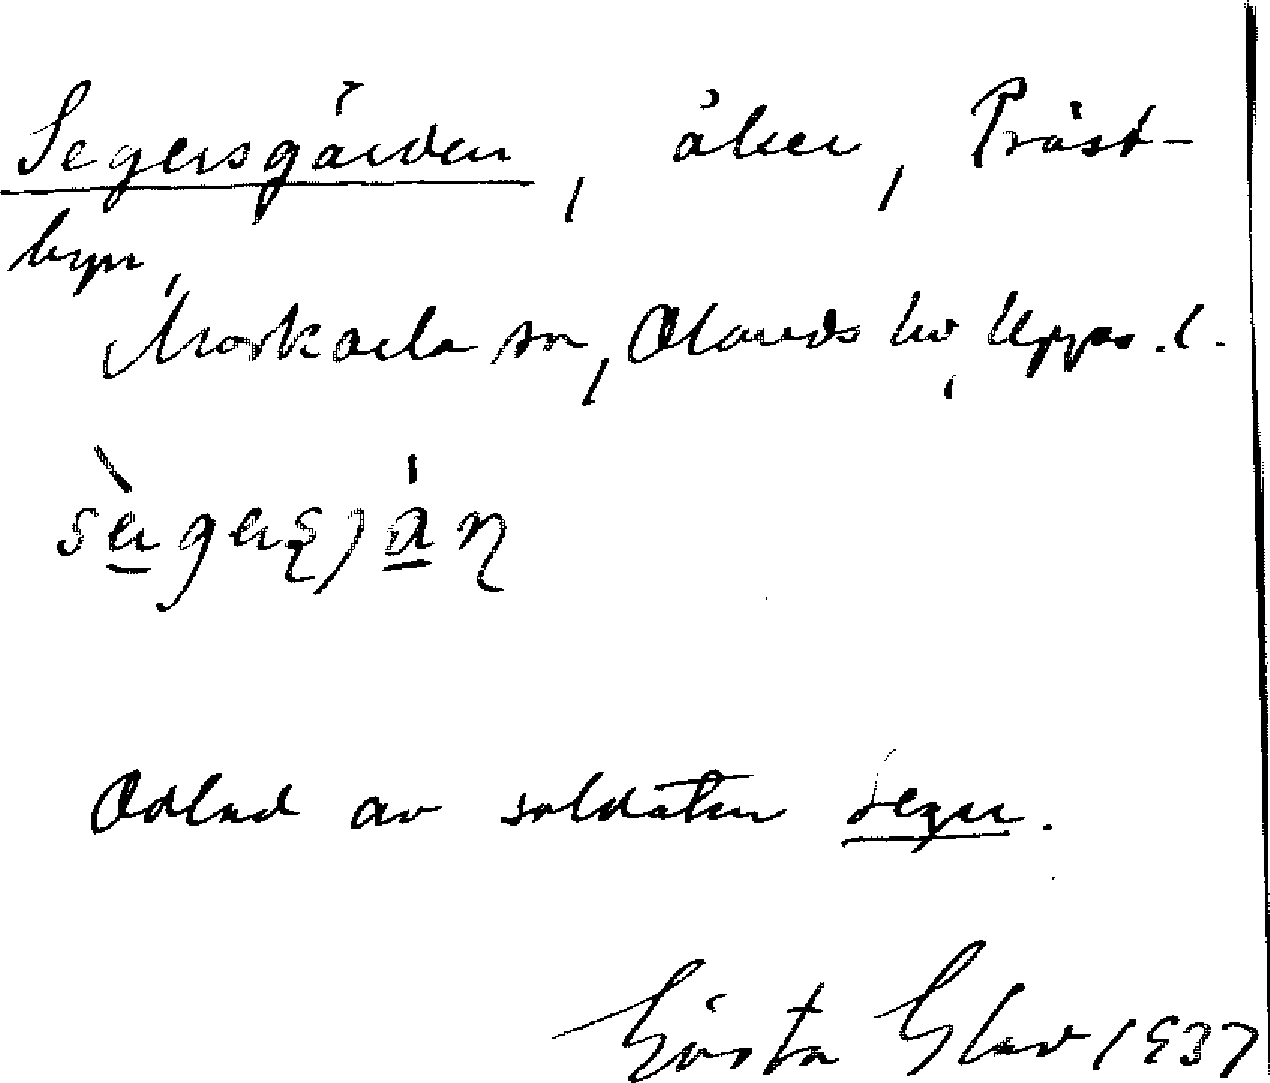 Segersgården, åker, Präst-
byn,
Morkarla sn, Olands hd, Upps. l.
Odlad av soldaten Seger.
Gösta Elav 1937